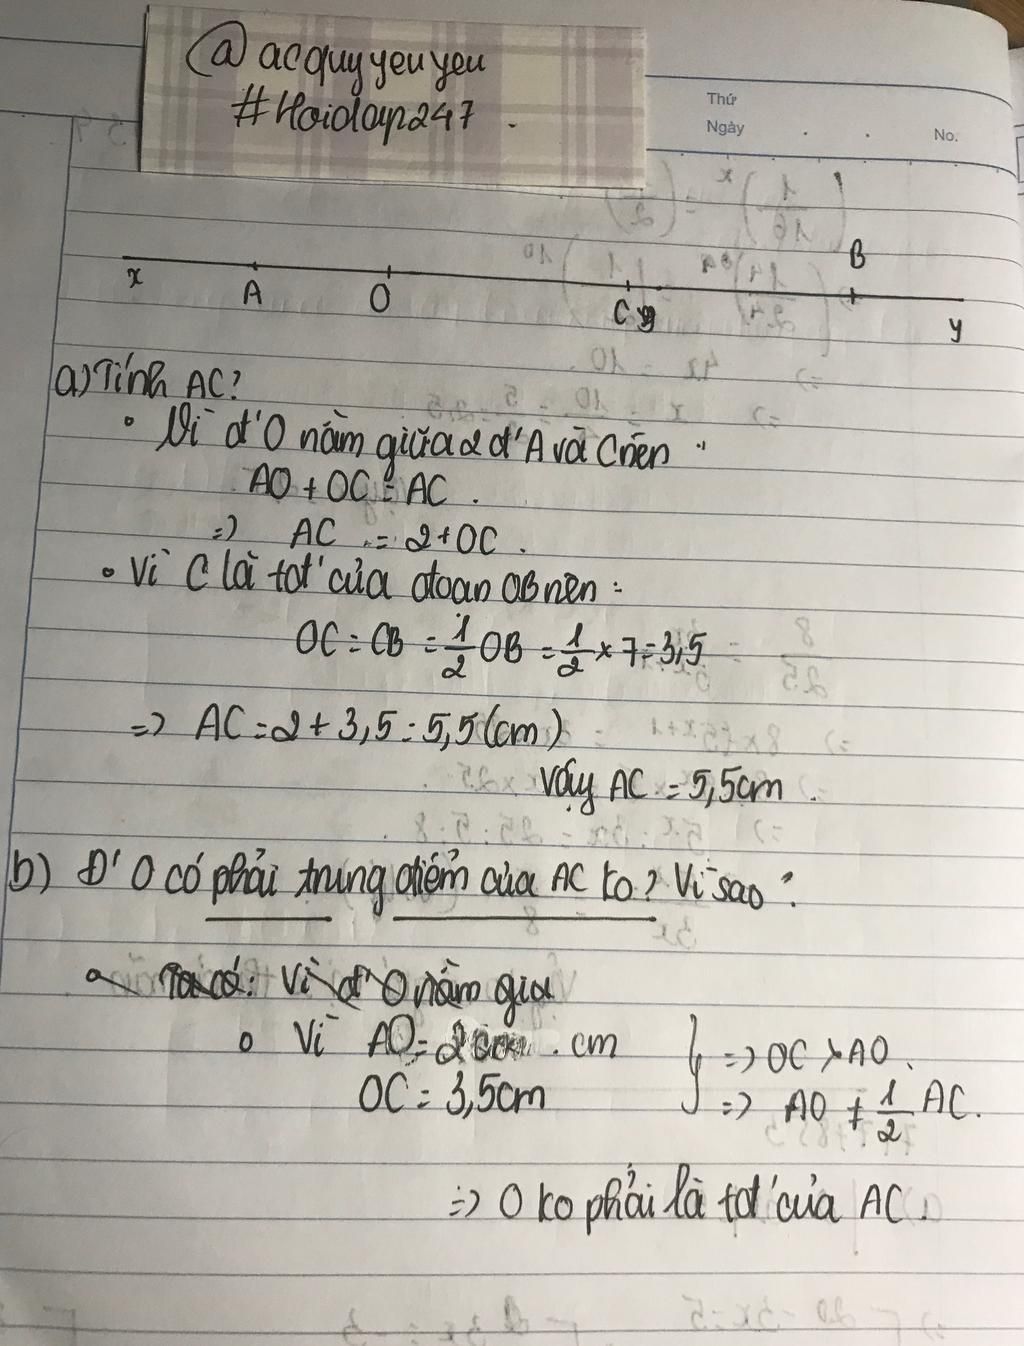 @acquyyeuyeu
#Hoidap247.
Thứ
Ngày . . No.
x A O C B y
a) Tính AC?
• Vì đ' O nằm giữa 2 đ' A và C nên
AO + OC = AC.
=> AC = 2 + OC.
• Vì C là tđ' của đoạn OB nên:
OC = CB = 1/2 OB = 1/2 x 7 = 3,5
=> AC = 2 + 3,5 = 5,5 (cm)
Vậy AC = 5,5cm.
b) Đ' O có phải trung điểm của AC ko? Vì sao?
Ta có: Vì đ' O nằm giữa
Vì AO = 2 cm
OC = 3,5cm
=> OC > AO.
=> AO ≠ 1/2 AC.
=> O ko phải là tđ' của AC.